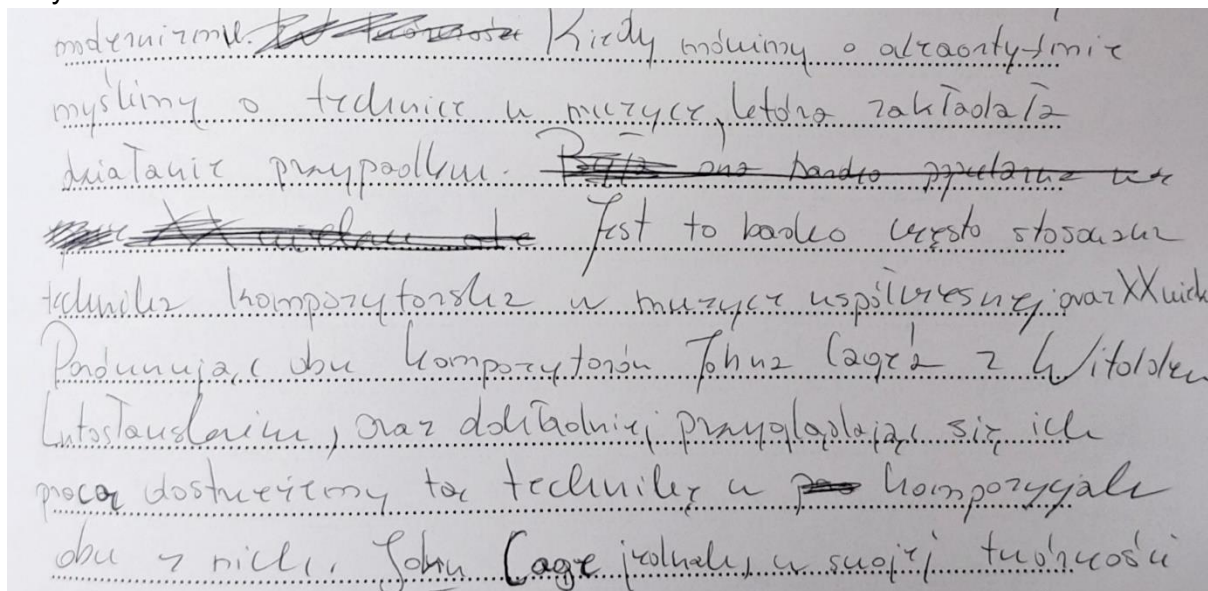 modernizmu. Kiedy mówimy o aleaortyźmie
myślimy o technice w muzyce, która zakładała
działanie przypadku. Była ona bardzo popularna w
XX wieku ale Jest to bardo często stosowana
technika kompozytorska w muzyce współczesnej oraz XX wiek
Porównując obu kompozytorów Johna Cage'a z Witoldem
Lutosławskim, oraz dokładniej przyglądając się ich
pracą dostrzeżemy tą technikę w kompozycjach
obu z nich. John Cage jednak, w swojej twórczości